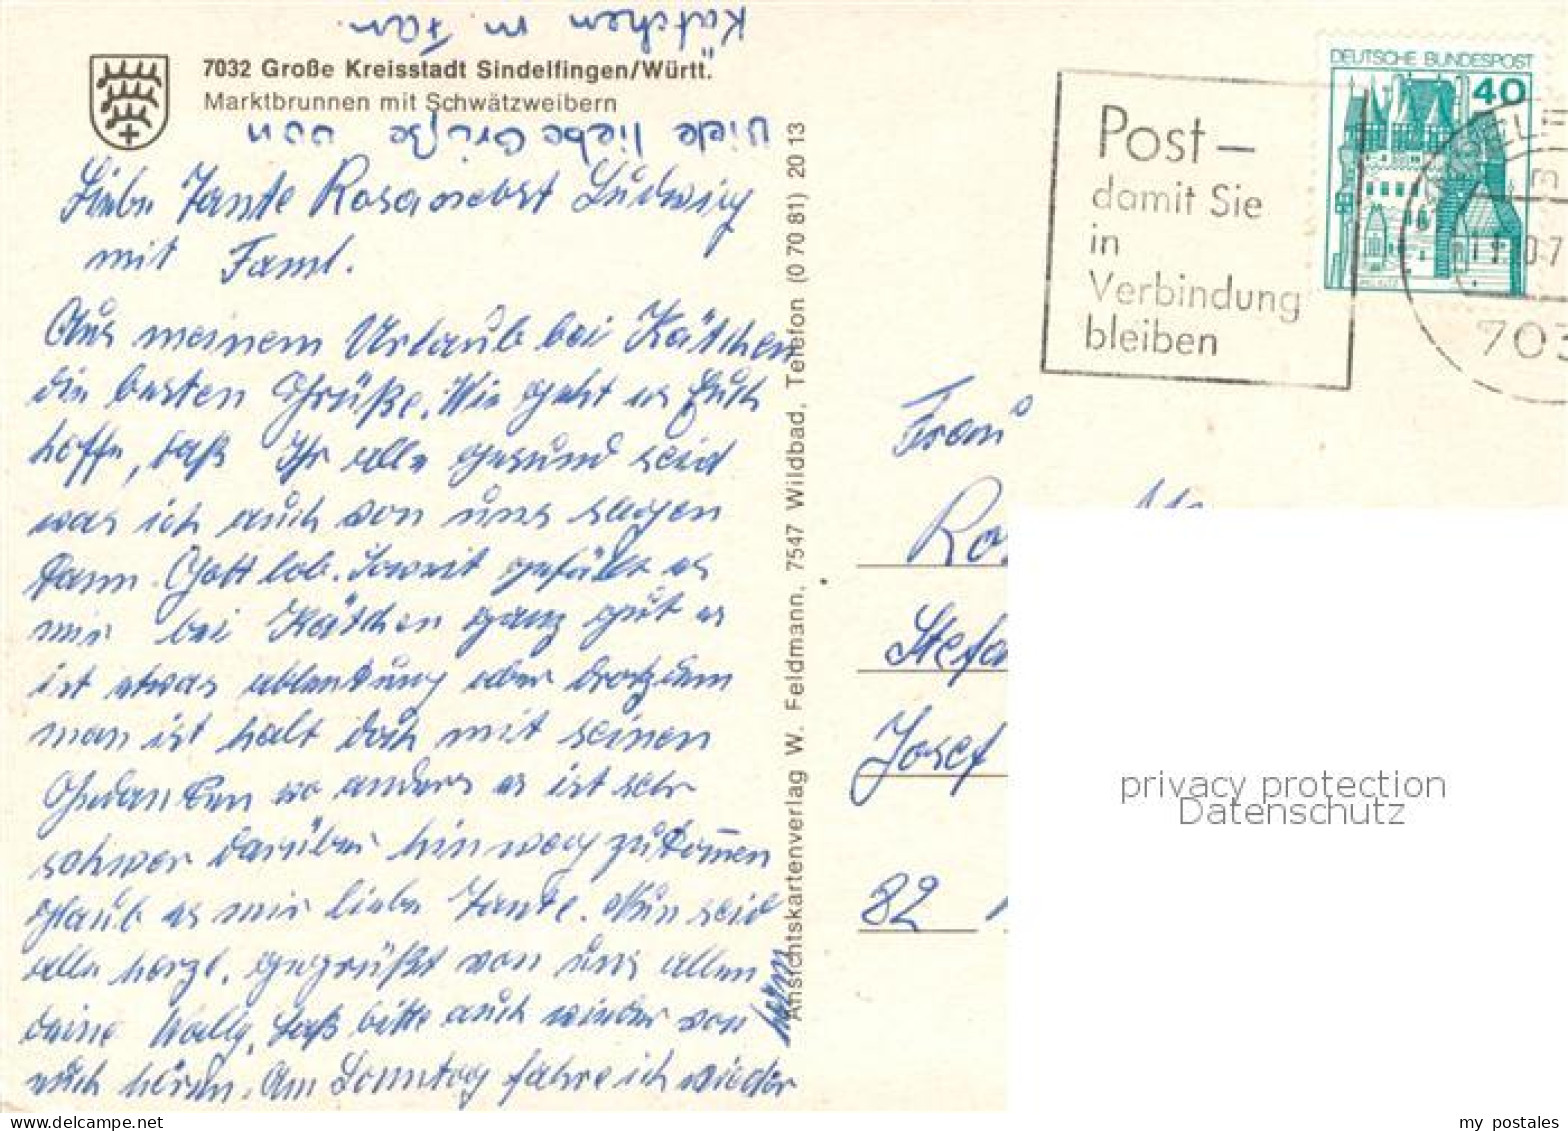 Kätchen m. Fam.
7032 Große Kreisstadt Sindelfingen/Württ.
Marktbrunnen mit Schwätzweibern
Viele liebe Grüße von
Liebe Tante Rosa nebst Ludwig
mit Faml.
Aus meinem Urlaub bei Kätchen
die besten Grüße. Wie geht es Euch
hoffe, daß Ihr alle gesund seid
was ich auch von uns sagen
kann. Gott lob. Soweit gefällt es
mir bei Kätchen ganz gut es
ist etwas ablenkung aber trotzdem
man ist halt doch mit seinen
Gedanken wo anders es ist sehr
schwer darüber hinweg zukommen
glaub es mir liebe Tante. Nun seid
alle herzl. gegrüßt von uns allen
deine Wally, laß bitte auch wieder von
euch hören. Am Sonntag fahre ich wieder
heim
Ansichtskartenverlag W. Feldmann, 7547 Wildbad, Telefon (0 70 81) 20 13
Post –
damit Sie
in
Verbindung
bleiben
DEUTSCHE BUNDESPOST
40
703
Frau
Ros
Stefa
Josef
82
privacy protection
Datenschutz
my postales